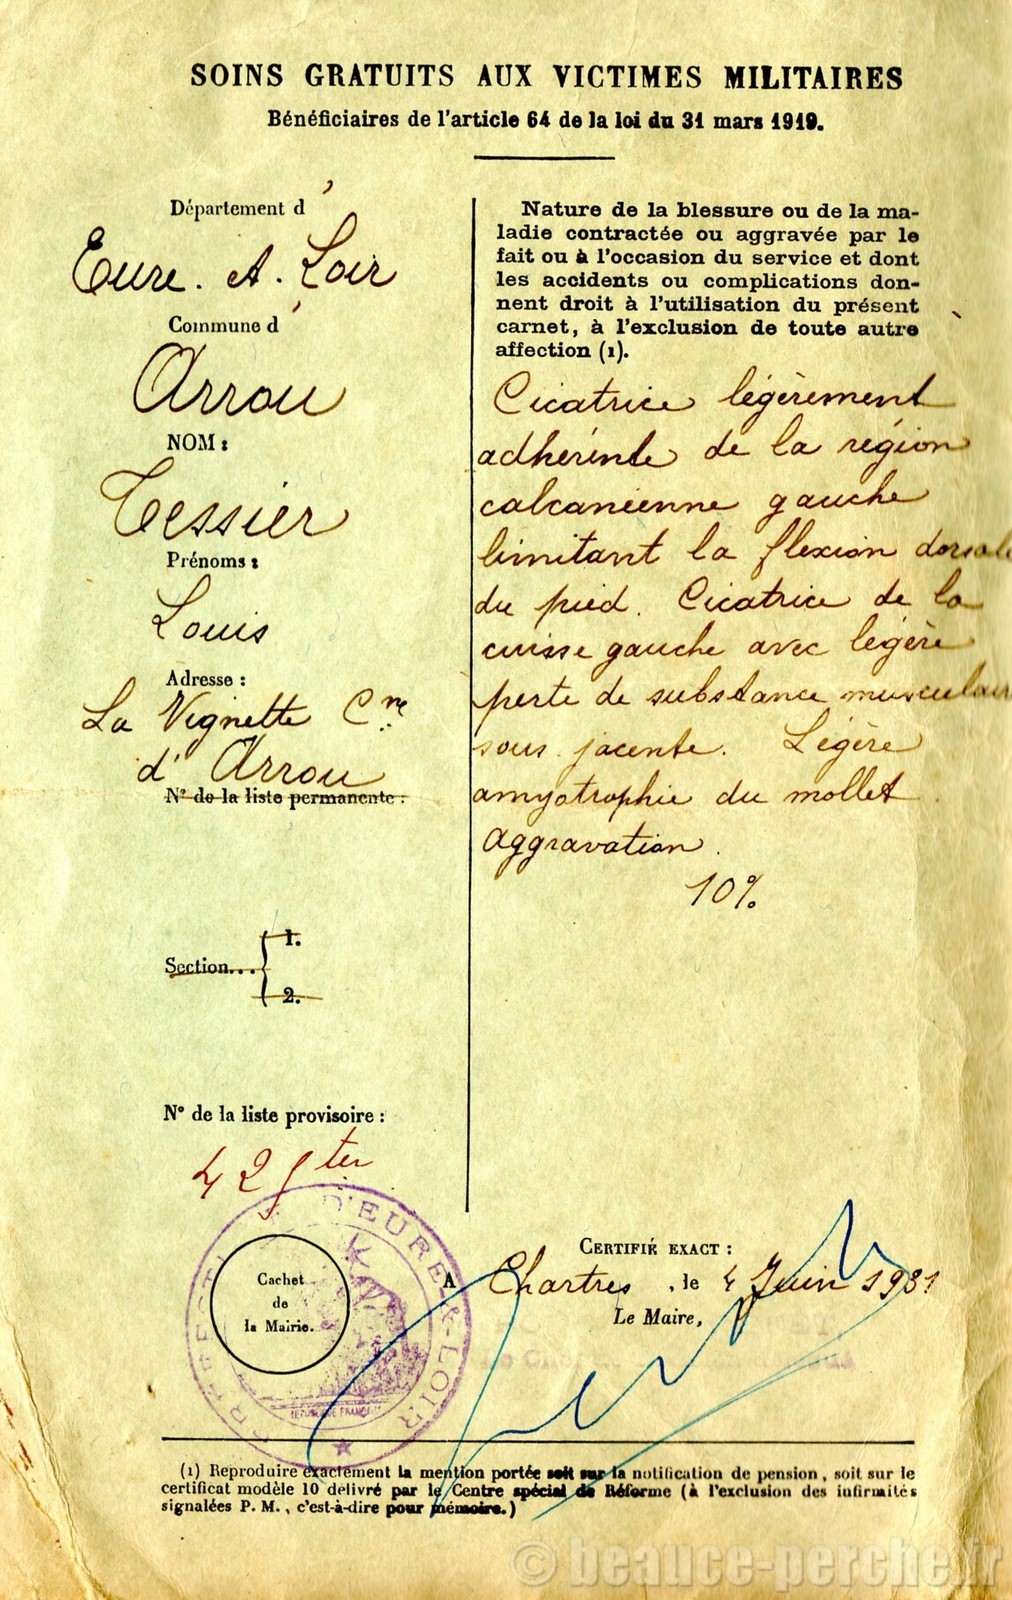 SOINS GRATUITS AUX VICTIMES MILITAIRES
Bénéficiaires de l'article 64 de la loi du 31 mars 1919.
Département d'
Eure. et. Loir
Commune d'
Arrou
NOM :
Tessier
Prénoms :
Louis
Adresse :
La Vignette Cne
d'Arrou
N° de la liste permanente :
Section... { 1.
2.
N° de la liste provisoire :
425 ter
Cachet
de
la Mairie.
D'EURE-&-LOIR
RÉPUBLIQUE FRANÇAISE
Nature de la blessure ou de la ma-
ladie contractée ou aggravée par le
fait ou à l'occasion du service et dont
les accidents ou complications don-
nent droit à l'utilisation du présent
carnet, à l'exclusion de toute autre
affection (1).
Cicatrice légèrement
adhérente de la région
calcanéenne gauche
limitant la flexion dorsale
du pied. Cicatrice de la
cuisse gauche avec légère
perte de substance musculaire
sous jacente. Légère
amyotrophie du mollet.
Aggravation.
10%
CERTIFIÉ EXACT :
A Chartres, le 4 Juin 1931
Le Maire,
(1) Reproduire exactement la mention portée soit sur la notification de pension, soit sur le
certificat modèle 10 délivré par le Centre spécial de Réforme (à l'exclusion des infirmités
signalées P. M., c'est-à-dire pour mémoire.)
© beauce-perche.fr